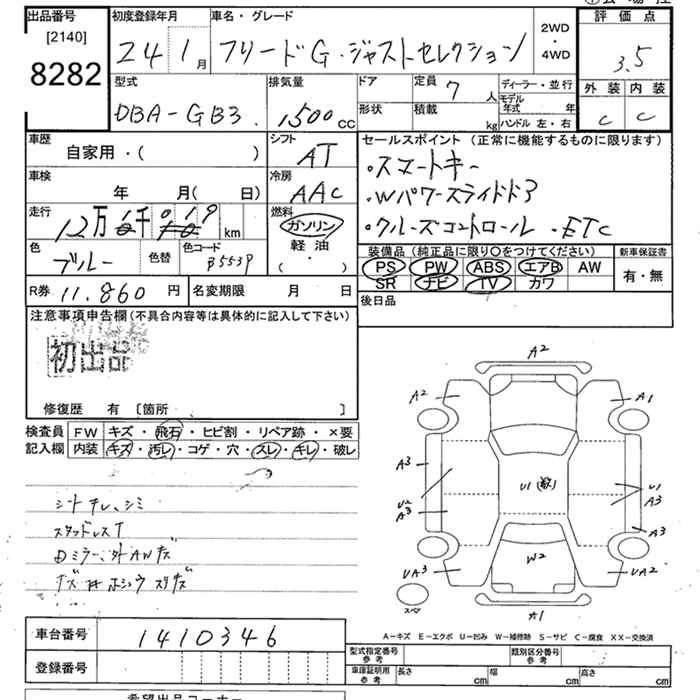 出品番号 初度登録年月 車名・グレード 評価点
[2140]
8282
24 1月 フリードG・ジャストセレクション 2WD・4WD 3.5
型式 排気量 ドア 定員 7人 ディーラー・並行 外装 内装
DBA-GB3. 1500cc 形状 積載 kg モデル年式 年 C C
ハンドル 左・右
車歴 シフト セールスポイント (正常に機能するものに限ります)
自家用・( ) AT ・スマートキー
車検 年 月( 日) 冷房 AAC ・Wパワースライドドア
走行 12万 千 019 km 燃料 ガソリン ・クルーズコントロール ・ETC
軽油
( ・ )
色 ブルー 色替 色コード B553P
装備品 (純正品に限り〇をつけてください) 新車保証書
PS PW ABS エアB AW 有・無
SR ナビ TV カワ
R券 11.860円 名変期限 月 日 後日品
注意事項申告欄(不具合内容等は具体的に記入して下さい)
初出品
修復歴 有 〔箇所 〕
検査員 FW キズ・飛石・ヒビ割・リペア跡・×要
記入欄 内装 キズ・汚レ・コゲ・穴・スレ・キレ・破レ
シートキレ、シミ
スタッドレスT
Dミラー、外AWキズ
A2
A2 A1
A3 U1 U1
U2 A3
A3 A3
W2
UA3 UA2
スペア A1
A-キズ E-エクボ U-凹み W-補修跡 S-サビ C-腐食 XX-交換済
車台番号 1410346
登録番号
型式指定番号 参考 類別区分番号 参考
車庫証明用 参考 長さ cm 幅 cm 高さ cm
希望出品コーナー